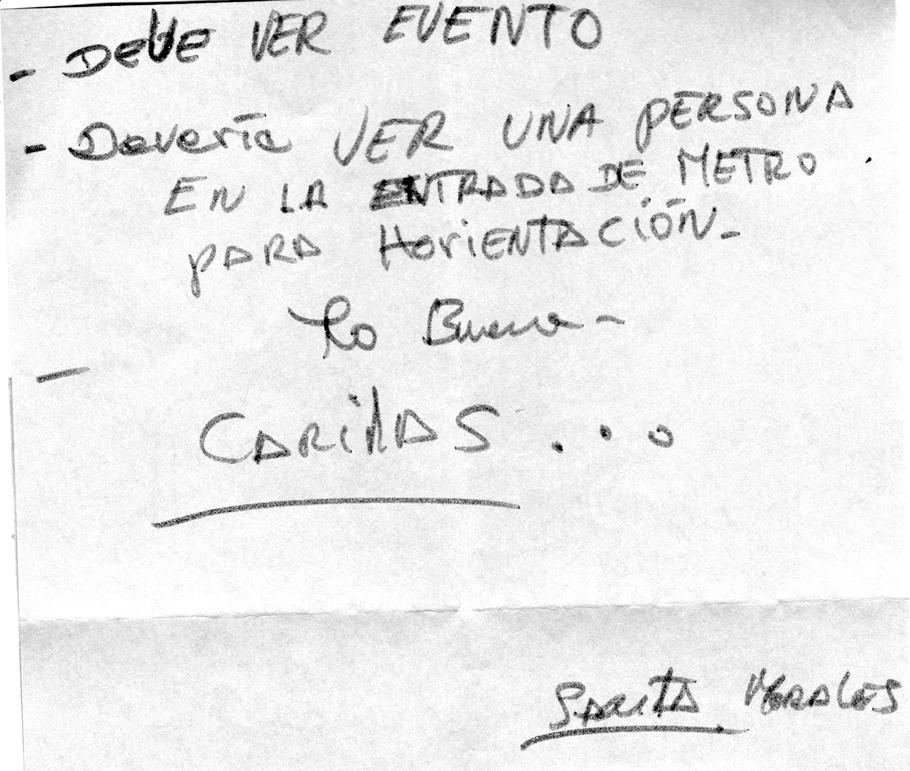 - DeVe VER EVENTO
- Daveria VER UNA PERSONA
EN LA ENTRADA DE METRO.
PARA HoriENTACiÓN-
lo Buena-
-
CARiÑAS...
SARITA MORALES